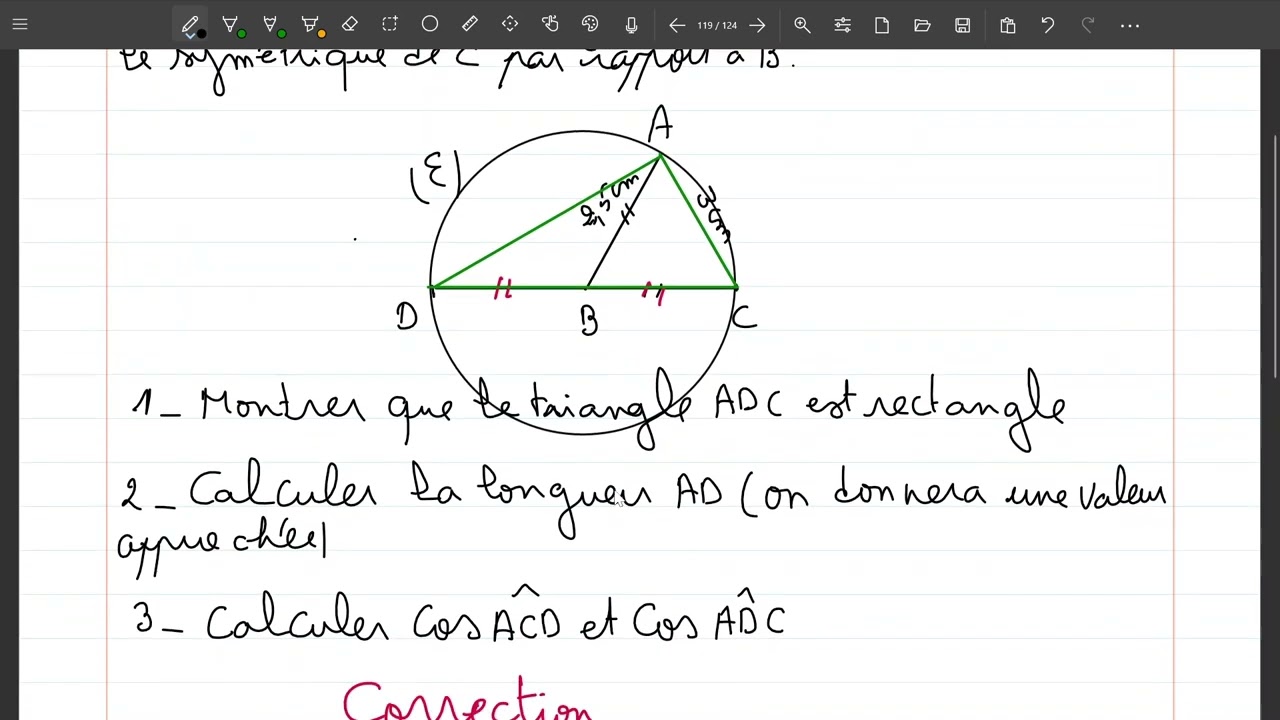 119 / 124
Le symétrique de C par rapport à B.
A
(E)
2,5cm
3cm
D
B
C
1_ Montrer que le triangle ADC est rectangle
2_ Calculer la longueur AD (on donnera une valeur
approchée)
3_ Calculer Cos AĈD et Cos AD̂C
Correction